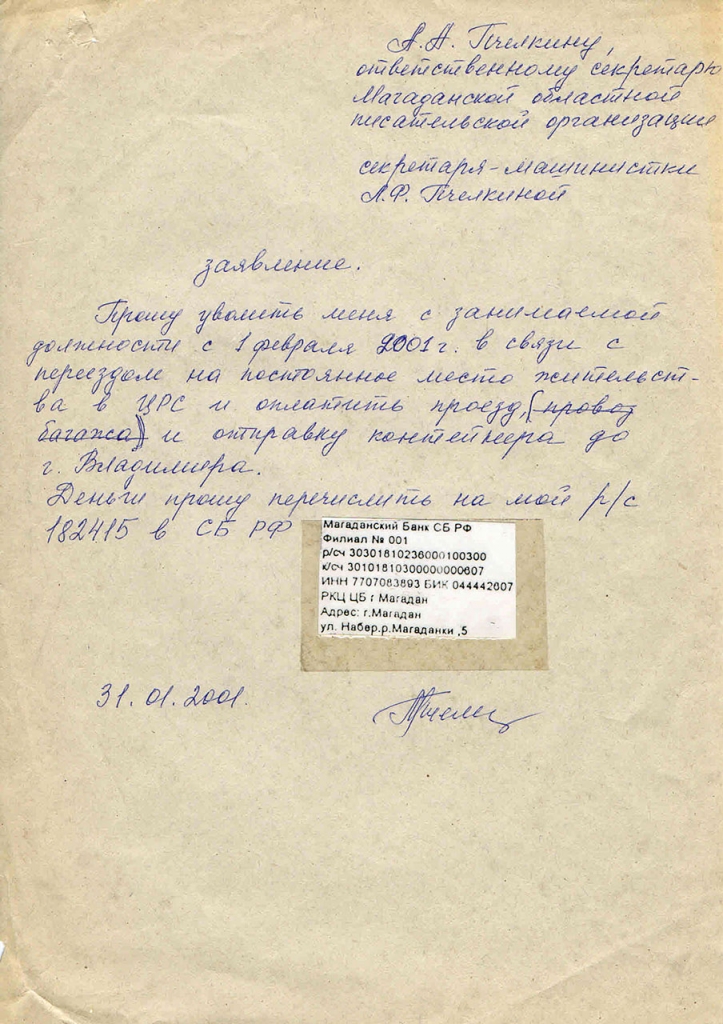 А.А. Пчелкину,
ответственному секретарю
Магаданской областной
писательской организации
секретаря-машинистки
Л.Ф. Пчелкиной
заявление.
Прошу уволить меня с занимаемой
должности с 1 февраля 2001 г. в связи с
переездом на постоянное место жительст-
ва в ЦРС и оплатить проезд, (провоз
багажа) и отправку контейнера до
г. Владимира.
Деньги прошу перечислить на мой р/с
182415 в СБ РФ
Магаданский Банк СБ РФ
Филиал № 001
р/сч 30301810236000100300
к/сч 30101810300000000607
ИНН 7707083893 БИК 044442607
РКЦ ЦБ г Магадан
Адрес: г.Магадан
ул. Набер.р.Магаданки ,5
31.01.2001.